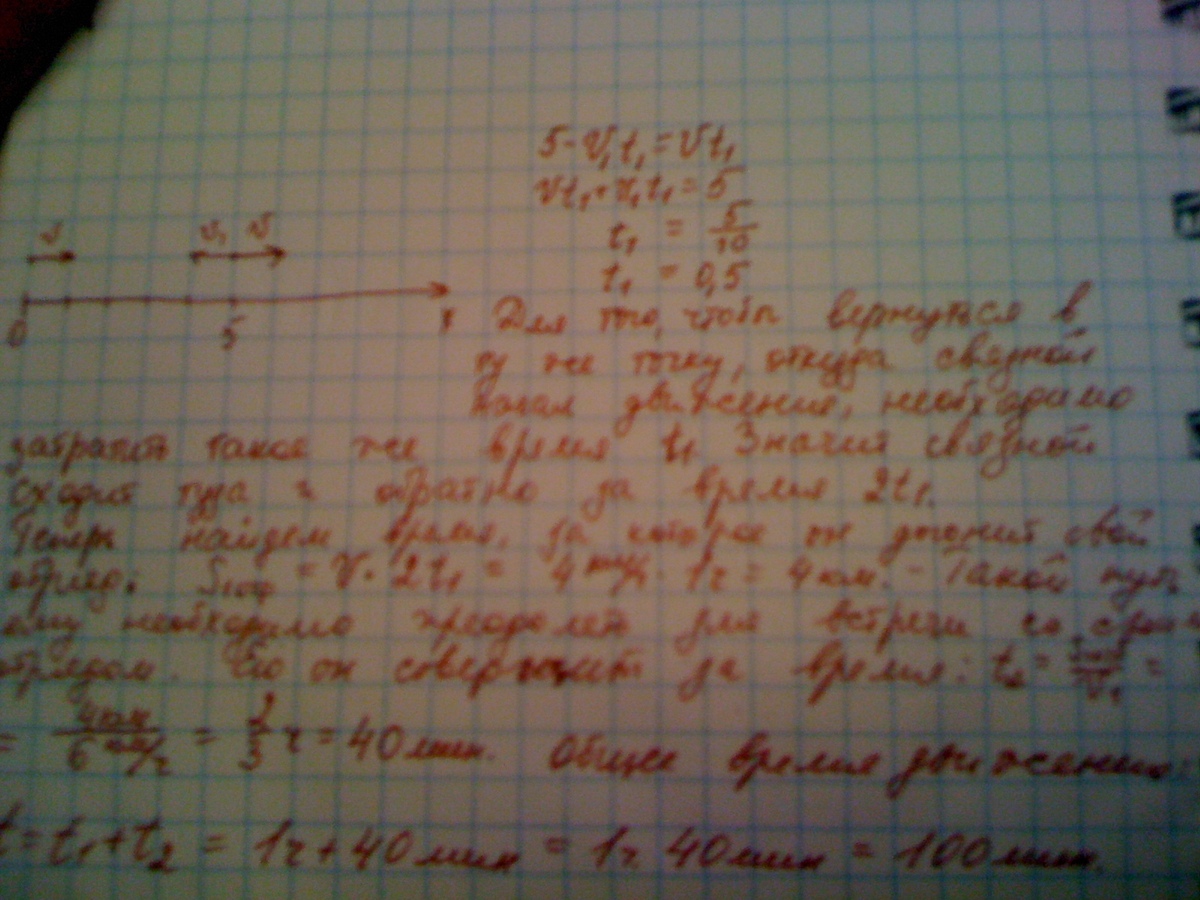 5-v₁t₁=vt₁
vt₁+v₁t₁=5
t₁ = 5/10
t₁ = 0,5
v v₁ v
0 5 x
Для того, чтобы вернуться в
ту же точку, откуда связной
начал движение, необходимо
затратить такое же время t₁. Значит связной
сходит туда и обратно за время 2t₁.
Теперь найдем время, за которое он догонит свой
отряд. = v · 2t₁ = 4 км/ч · 1ч = 4 км. - Такой путь
ему необходимо преодолеть для встречи со своим
отрядом. Его он совершит за время: t₂ = =
= 4км/6 км/ч = 2/3 ч = 40 мин. Общее время движения:
t = t₁+t₂ = 1ч+40 мин = 1ч 40 мин = 100 мин.